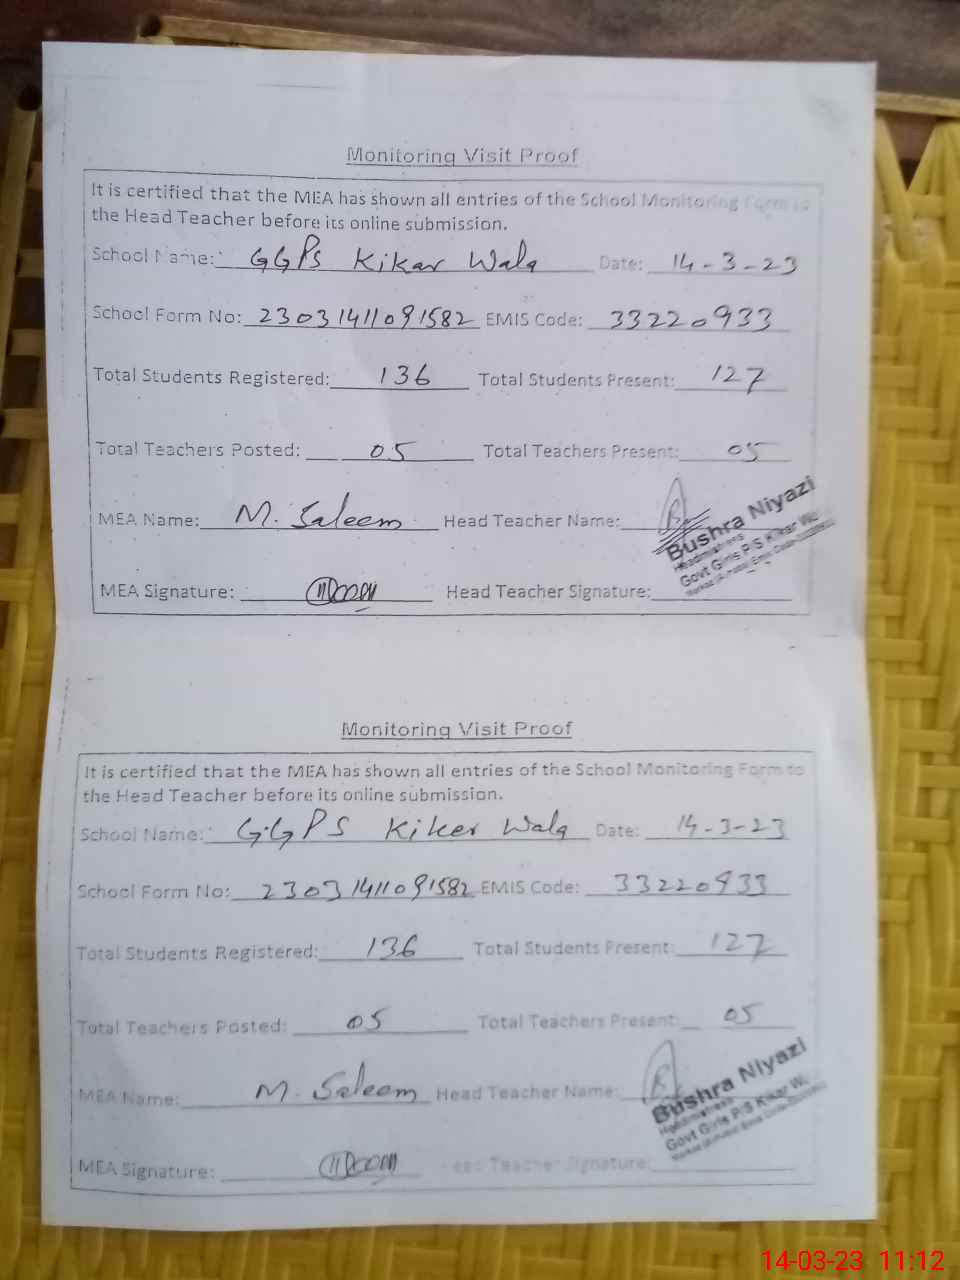 Monitoring Visit Proof
It is certified that the MEA has shown all entries of the School Monitoring Form to
the Head Teacher before its online submission.
School Name: GGPS Kikar Wala Date: 14-3-23
School Form No: 23031411091582 EMIS Code: 33220933
Total Students Registered: 136 Total Students Present: 127
Total Teachers Posted: 05 Total Teachers Present: 05
MEA Name: M. Saleem Head Teacher Name:
Bushra Niyazi
Headmistress
Govt Girls P/S Kikar
MEA Signature: Head Teacher Signature:
Monitoring Visit Proof
It is certified that the MEA has shown all entries of the School Monitoring Form to
the Head Teacher before its online submission.
School Name: G.G.P.S Kiker Wala Date: 14-3-23
School Form No: 23031411091582 EMIS Code: 33220933
Total Students Registered: 136 Total Students Present: 127
Total Teachers Posted: 05 Total Teachers Present: 05
MEA Name: M. Saleem Head Teacher Name:
Bushra Niyazi
Headmistress
Govt Girls P/S Kikar
MEA Signature: Teacher Signature:
14-03-23 11:12